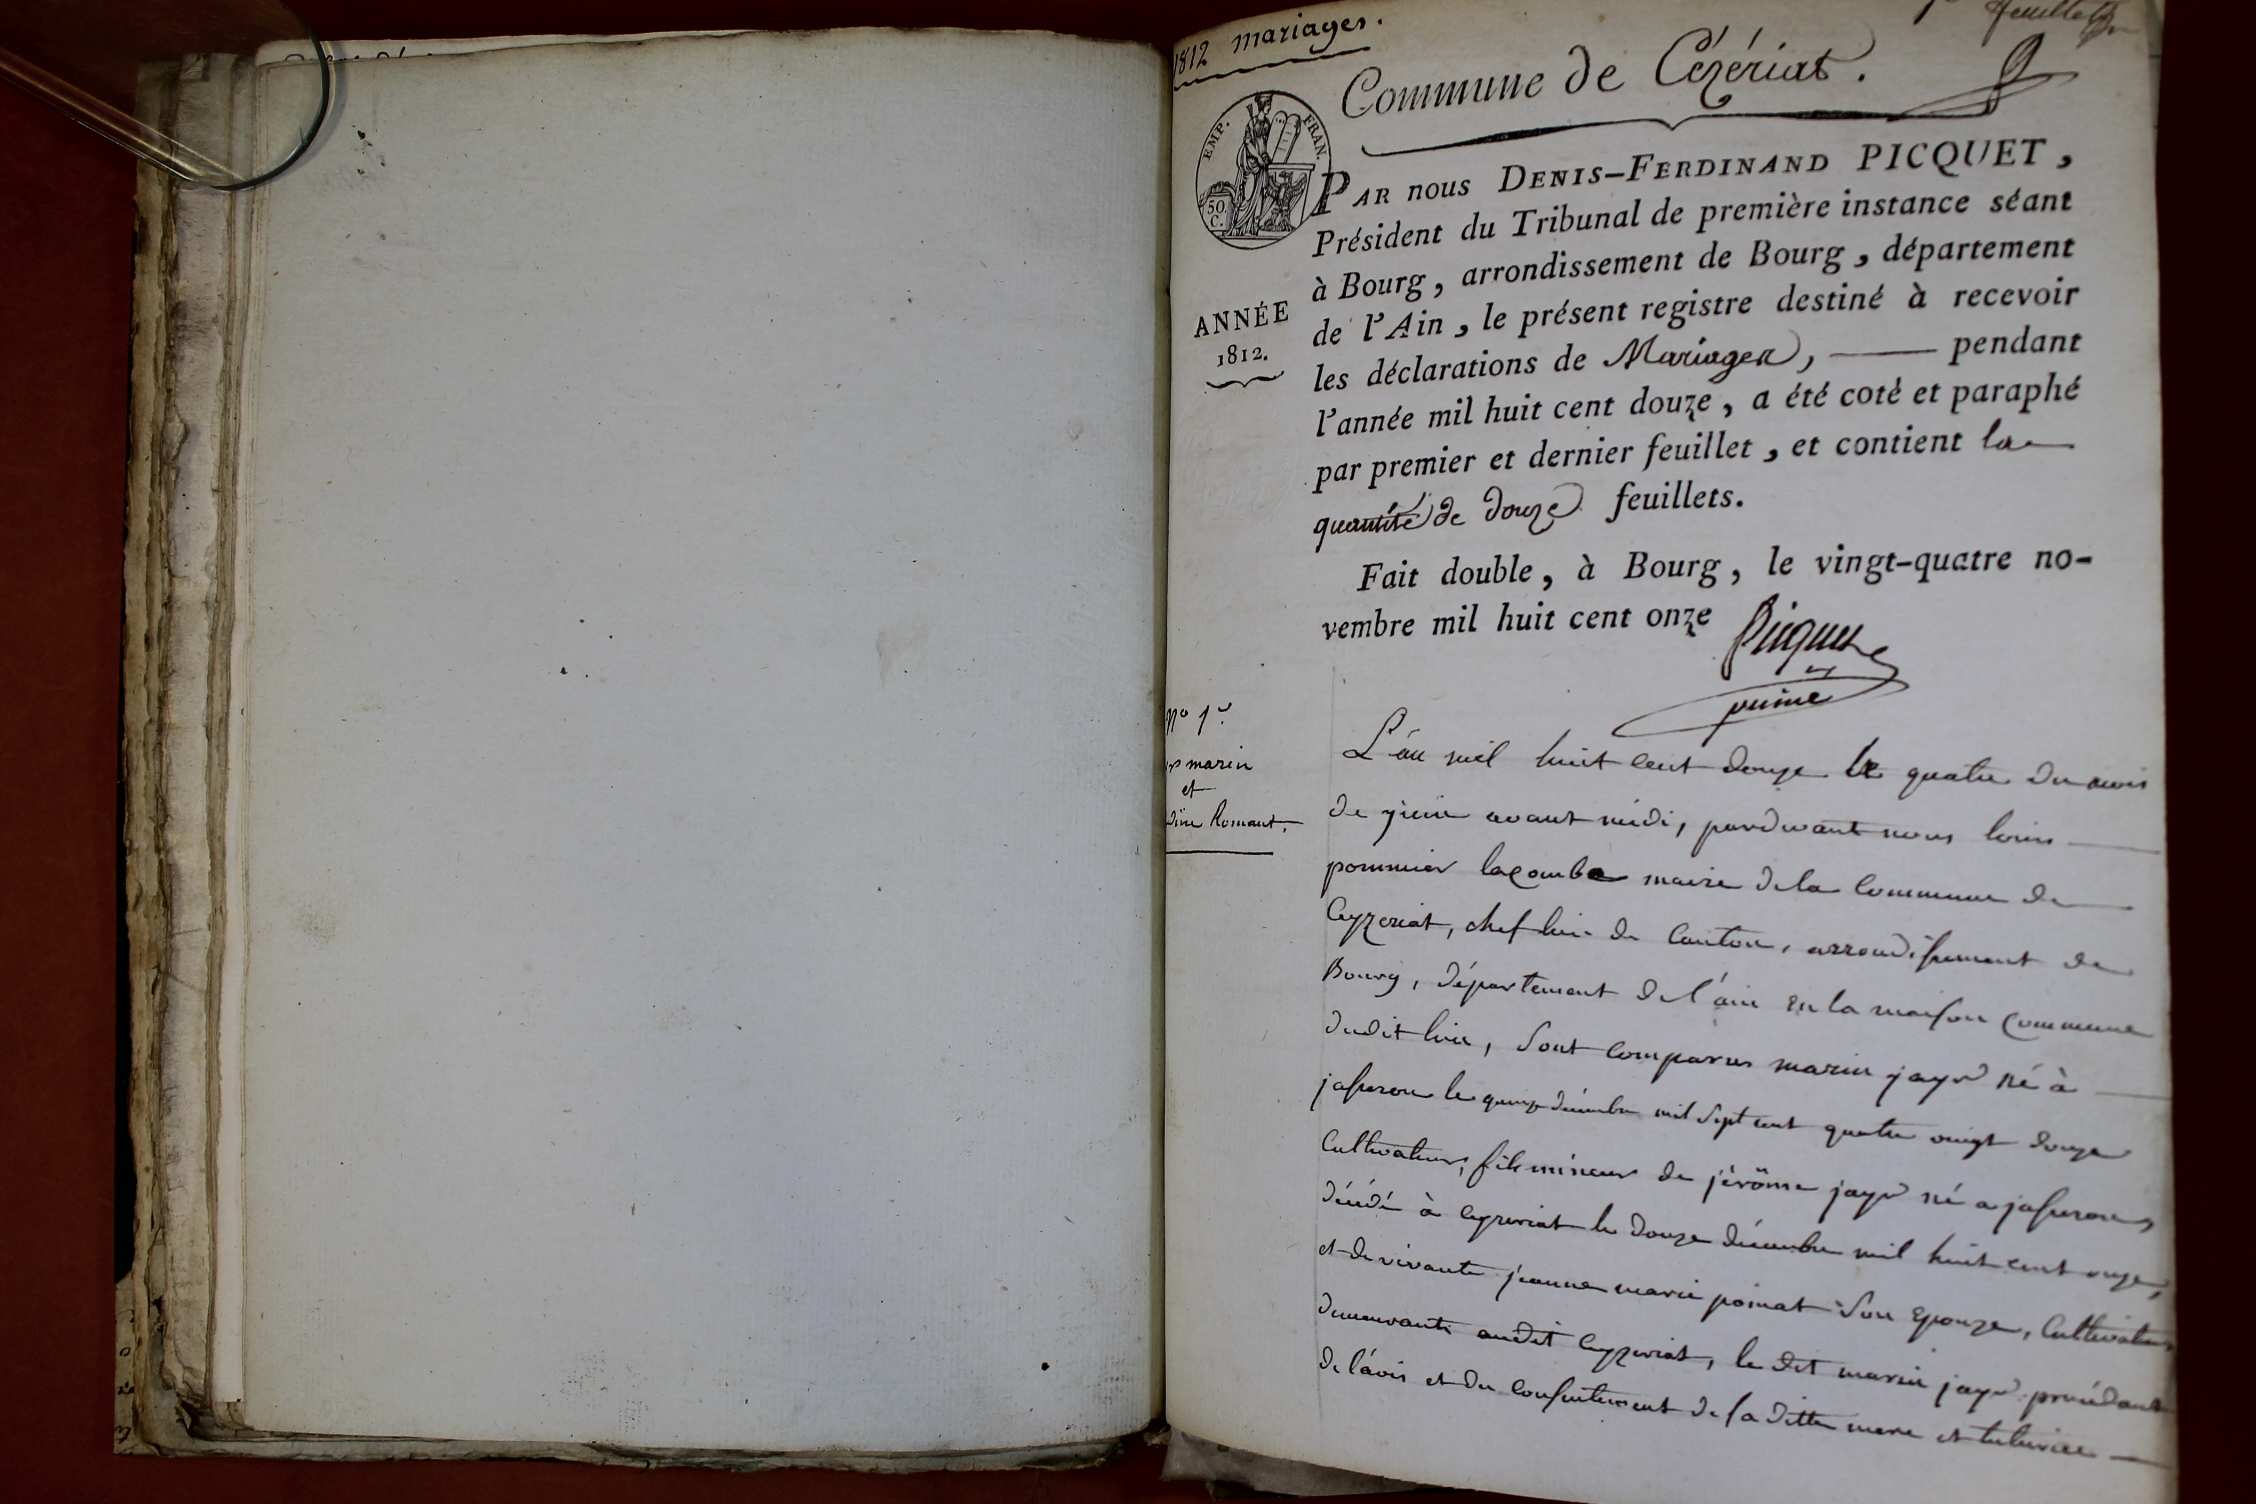 1812 mariages.
feuillet
Commune de Cézériat.
EMP. FRAN.
50 C.
PAR nous DENIS-FERDINAND PICQUET,
Président du Tribunal de première instance séant
à Bourg, arrondissement de Bourg, département
ANNÉE
1812.
de l'Ain, le présent registre destiné à recevoir
les déclarations de Mariages, — pendant
l'année mil huit cent douze, a été coté et paraphé
par premier et dernier feuillet, et contient la
quantité de douze feuillets.
Fait double, à Bourg, le vingt-quatre no-
vembre mil huit cent onze
Picquet
N° 1er
marin
et
Romant.
L'án mil huit cent douze le quatre du mois
de avant midi, pardevant nous louis
pommier lacombe maire de la Commune de
Ceyzeriat, chef lieu de Canton, arrondissement de
Bourg, département de l'ain en la maison Commune
dudit lieu, Sont comparus marin jayr né à
jasseron le quinze décembre mil Sept cent quatre vingt douze
Cultivateur, fils mineur de jérôme jayr né a jasseron,
décédé à Ceyzeriat le douze décembre mil huit cent onze,
et de vivante jeanne marie poinat Son Epouze, Cultivateurs
demeurants audit Ceyzeriat, le dit marin jayr procédant
de l'ávis et du Consentement de sa ditte mere et tutrice